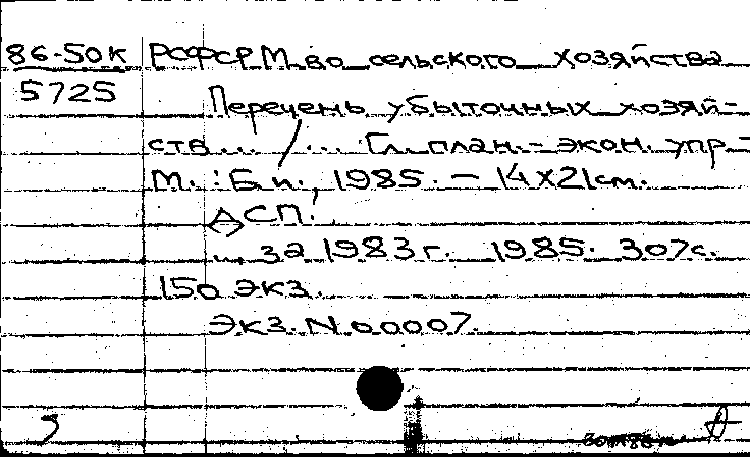 86-50к РСФСР М-во сельского хозяйства
5725 Перечень убыточных хозяй-
ств... /... Гл. план.-экон. упр.-
М.: Б.и., 1985. — 14х21см.
ДСП.
... за 1983 г. 1985. 307с.
150 экз.
Экз. N 00007.